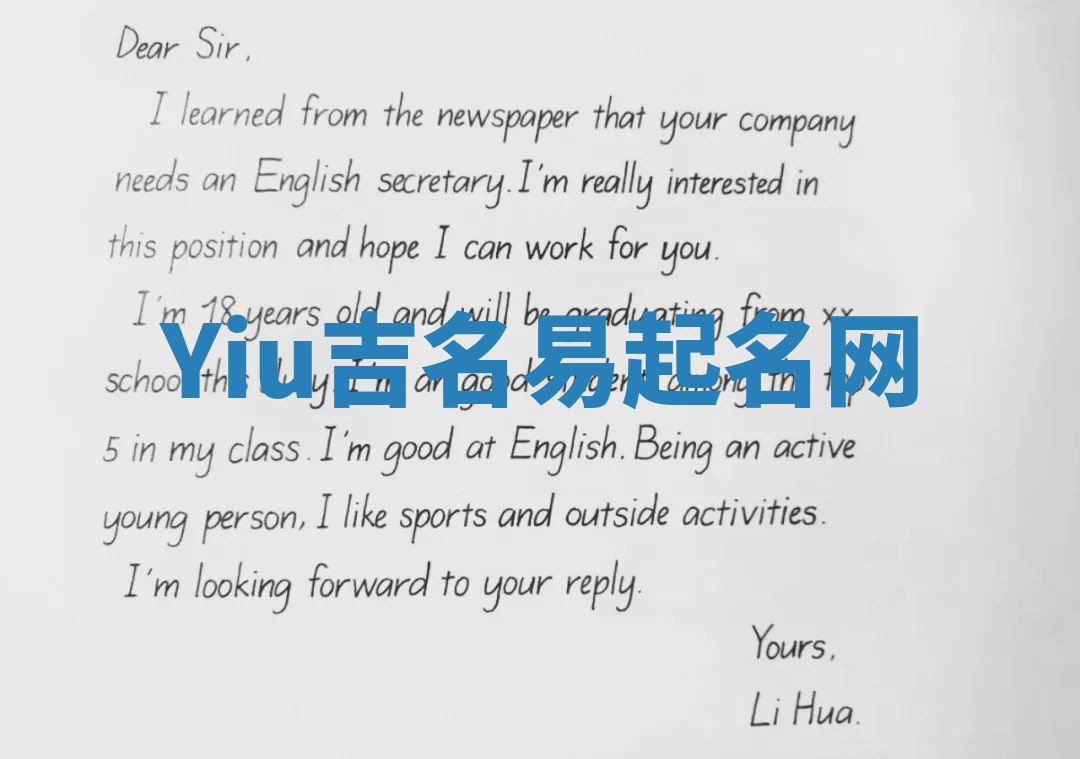 Dear Sir,
I learned from the newspaper that your company
needs an English secretary. I'm really interested in
this position and hope I can work for you.
I'm 18 years old and will be graduating from xx
Yiu吉名易起名网
school this July. I'm a good student among the top
5 in my class. I'm good at English. Being an active
young person, I like sports and outside activities.
I'm looking forward to your reply.
Yours,
Li Hua.